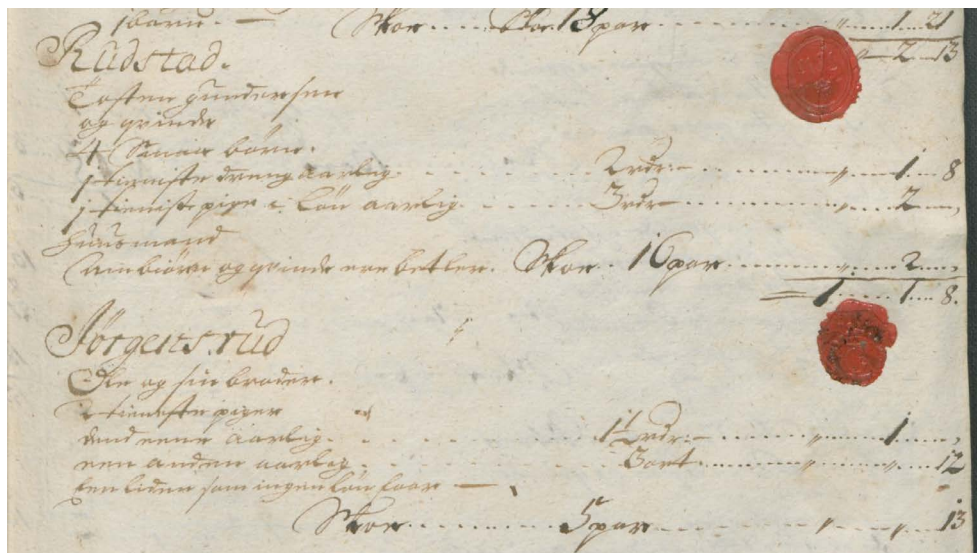 1 børn. — Skoe .... Skoe. 13 par .... " .... 1 .... 21
Rudstad. " — 2 — 13
Tosten Gundersen
og qvinde
4 Smaa børn.
1 tieniste dreng aarlig. .... 2 rdr: .... " .... 1 .... 8
1 tieniste pige i løn aarlig .... 3 rdr .... " .... 2 .... "
Huusmand
og qvinde ere betler. Skoe .. 16 par .... " .... 2 .... "
1 .... 1 .... 8.
Jörgensrud
Ole og sin broder.
2 tieneste piger
dend eene aarlig. .... 1½ rdr: .... " .... 1 .... "
een anden aarlig .... 3 ort .... " .... " .... 12
een liden som ingen løn faar —
Skoe .... 5 par .... " .... " .... 13